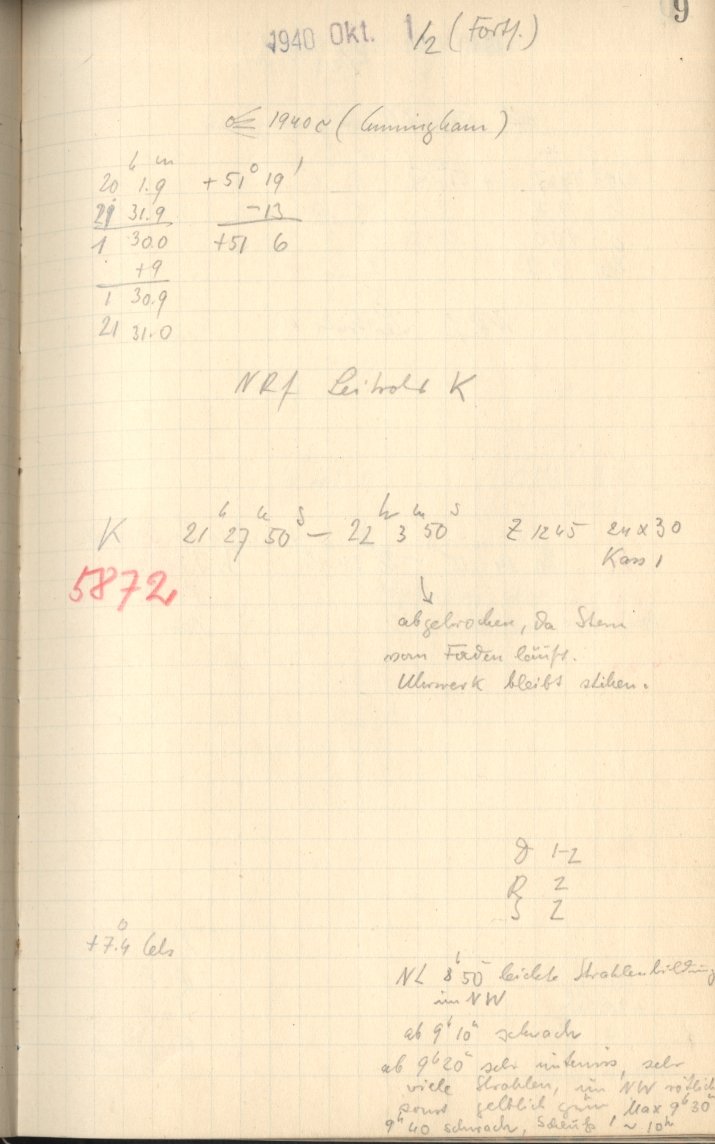 9
1940 Okt. 1/2 (Fortf.)
☄ 1940c (Cunningham)
20ʰ 1.9ᵐ +51° 19'
21 31.9 -13
1 30.0 +51 6
+9
1 30.9
21 31.0
NRf Leitrohr K
K 21ʰ 27ᵐ 50ˢ – 22ʰ 3ᵐ 50ˢ Z 1245 24x30
Kass 1
5872
↓
abgebrochen, da Stern
vom Faden läuft.
Uhrwerk bleibt stehen.
D 1-2
R 2
S 2
+7.4° Cels
NL 8ʰ50ᵐ leichte Strahlenbildung
im NW
ab 9ʰ 10ᵐ schwach
ab 9ʰ20ᵐ sehr intensiv, sehr
viele Strahlen, im NW rötlich
sonst gelblich grün, Max 9ʰ30ᵐ
9ʰ 40 schwach, Schluß ~ 10ʰ